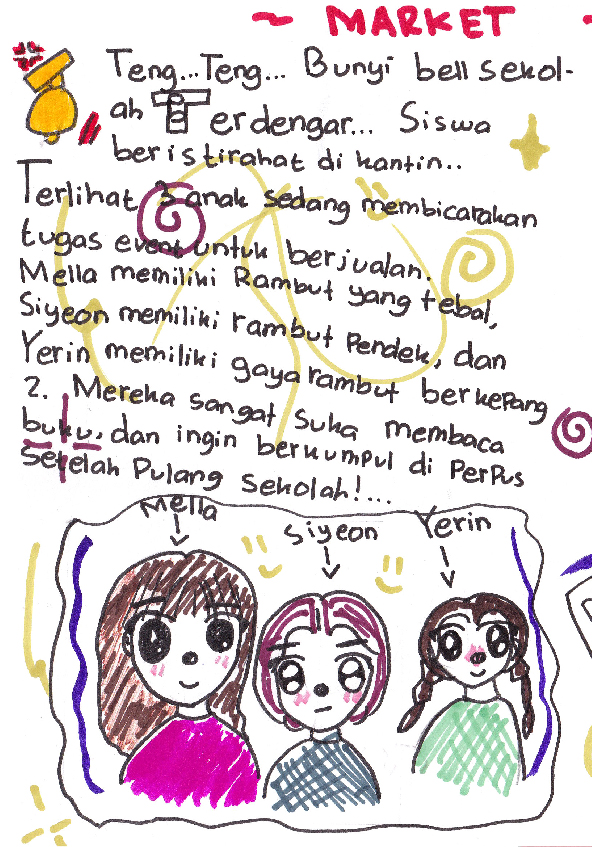 ~ MARKET ~
Teng...Teng... Bunyi bell sekol-
ah Terdengar... Siswa
beristirahat di kantin..
Terlihat 3 anak sedang membicarakan
tugas event untuk berjualan.
Mella memiliki Rambut yang tebal,
Siyeon memiliki rambut Pendek, dan
Yerin memiliki gaya rambut berkepang
2. Mereka sangat suka membaca
buku, dan ingin berkumpul di PerPus
Setelah Pulang Sekolah!...
Mella
Siyeon
Yerin